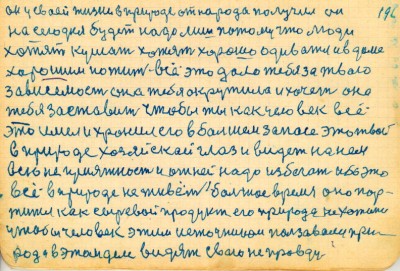 он у своей жизни в природе от народа получил он 196
на сегодня будет надо им потому что люди
хотят кушат хотят хорошо одиватся в доме
хорошим потит всё это дало тебя за твою
зависемост она тебя окрутила и хочет она
тебя заставит чтобы ты как человек всё
это имел и хронил его в болшем запасе это твой
в природе хозяйскай глаз и видет на нем
всю не приятност и от ней надо избегат ибо это
всё в природе не живёт болшое время оно пор-
тится как сыревой продукт его природа не хотела
чтобы человек этим источником ползавался при-
рода в этом деле видят свою не провду